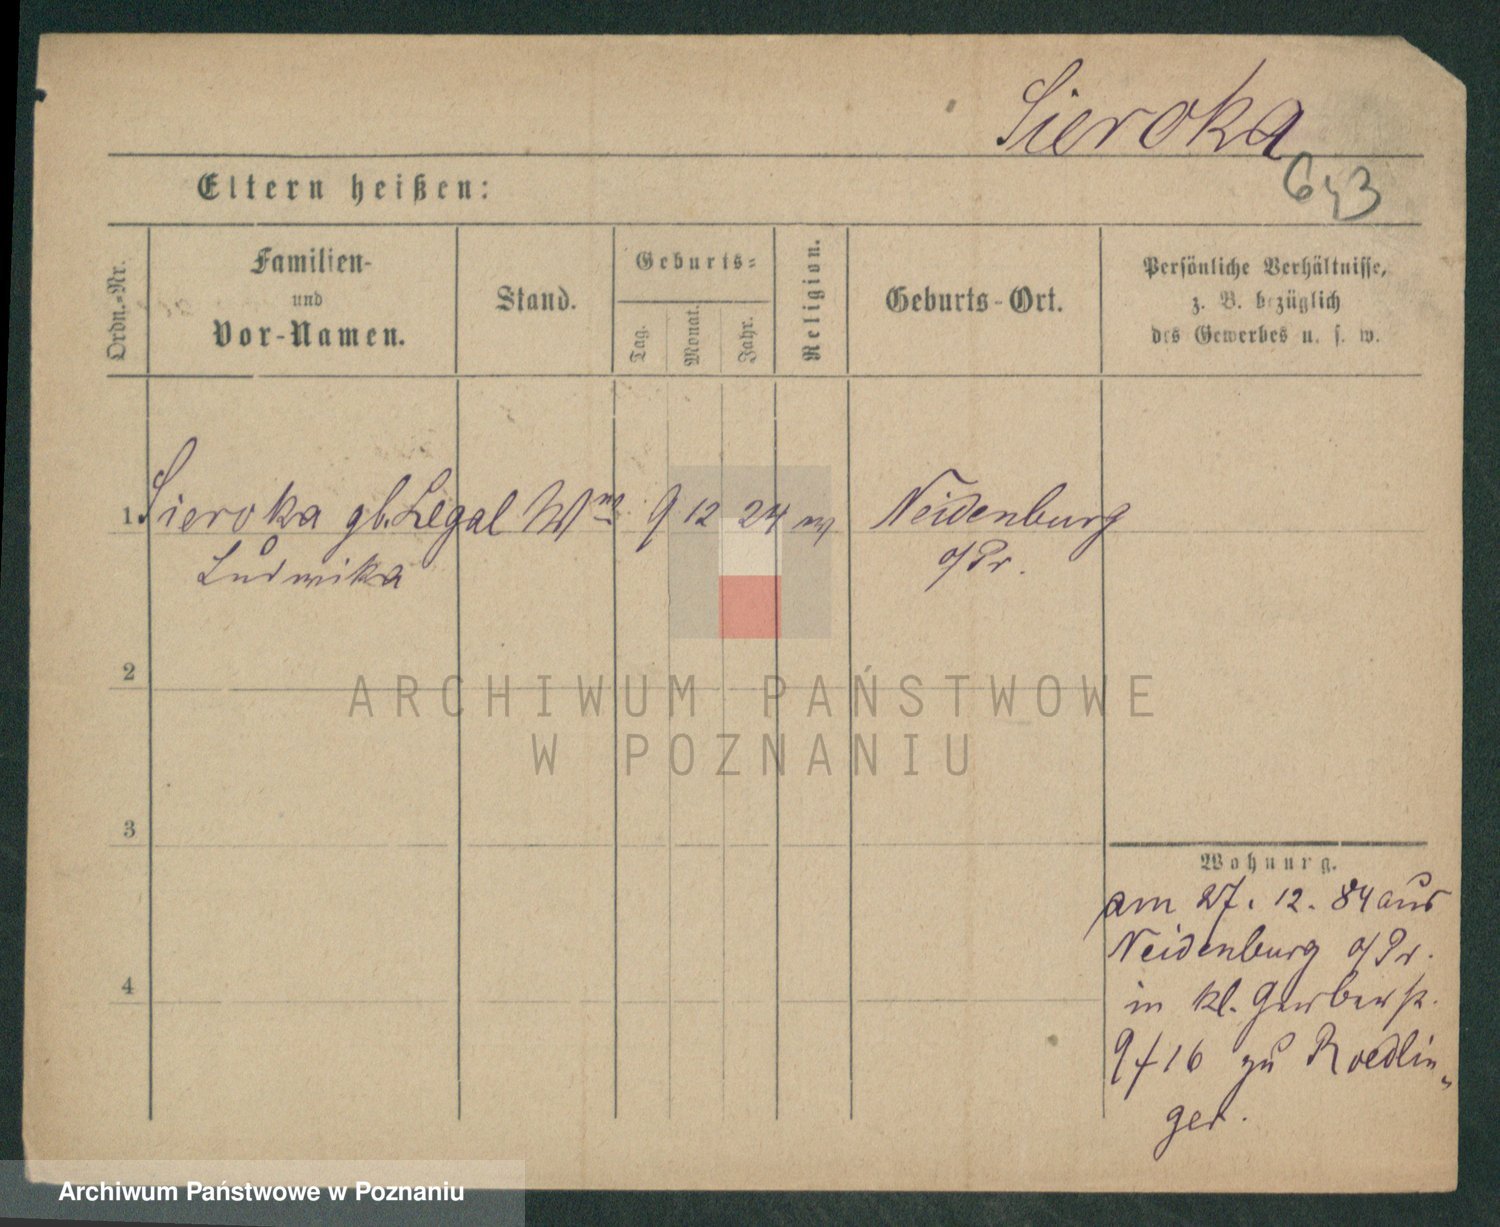 Sieroka
643
Eltern heißen:
Ordn.-Nr.
Familien-
und
Vor-Namen.
Stand.
Geburts-
Tag.
Monat.
Jahr.
Religion.
Geburts-Ort.
Persönliche Verhältnisse,
z. B. bezüglich
des Gewerbes u. s. w.
1 Sieroka gb. Legal Wwe 9 12 24 Neidenburg
Ludwika o/Pr.
2
3
4
Wohnung.
am 27. 12. 84 aus
Neidenburg o/Pr.
in kl. Gerberst.
9/16 zu Roedlin-
ger.
ARCHIWUM PAŃSTWOWE
W POZNANIU
Archiwum Państwowe w Poznaniu